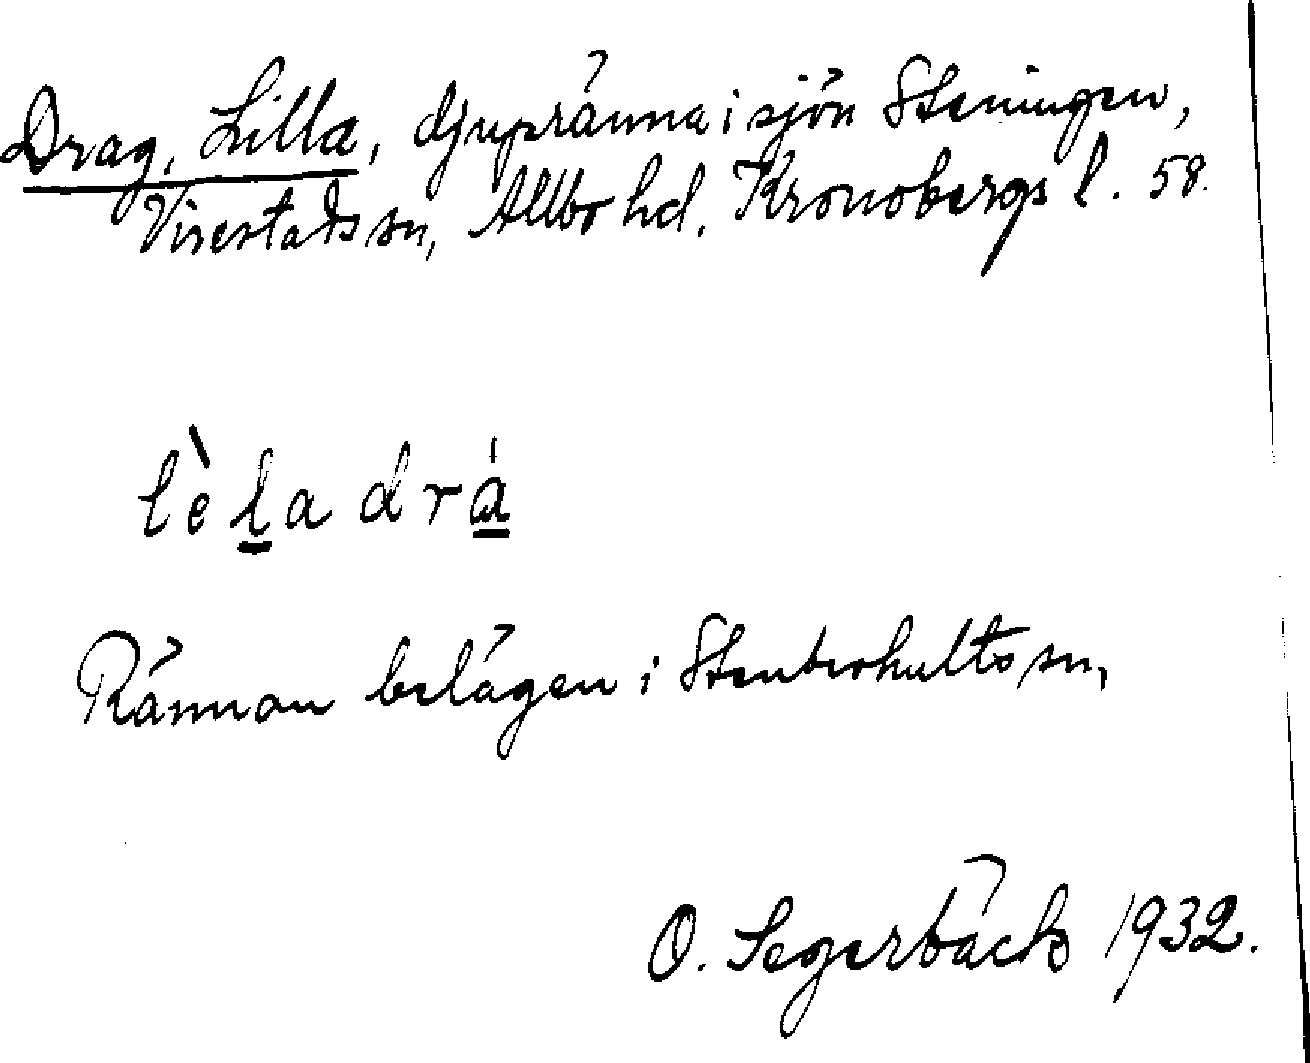 Drag, Lilla, djupränna i sjön Steningen,
Virestads sn, Allbo hd. Kronobergs l. 58.
lèl̲a drá̲
Rännan belägen i Stenbrohults sn,
O. Segerbäck 1932.